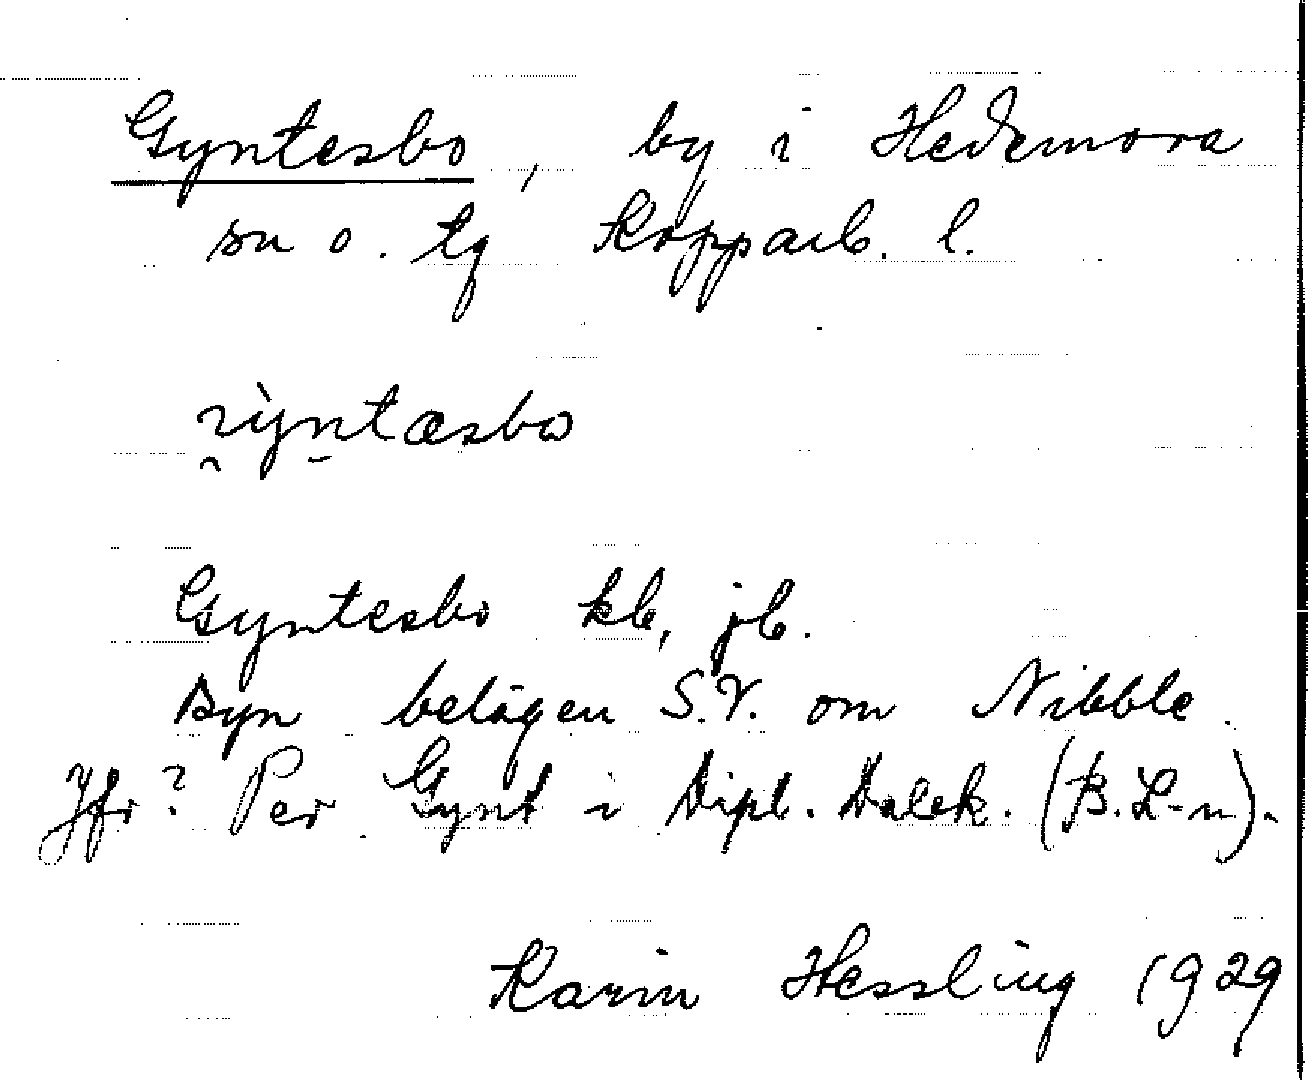 Gyntesbo, by i Hedemora
sn o. tg Kopparb. l.
Gyntesbo kb, jb.
Byn belägen S.V. om Nibble.
Jfr? Per Gynt i Dipl. Dalek. (B.L-n).
Karin Hessling 1929